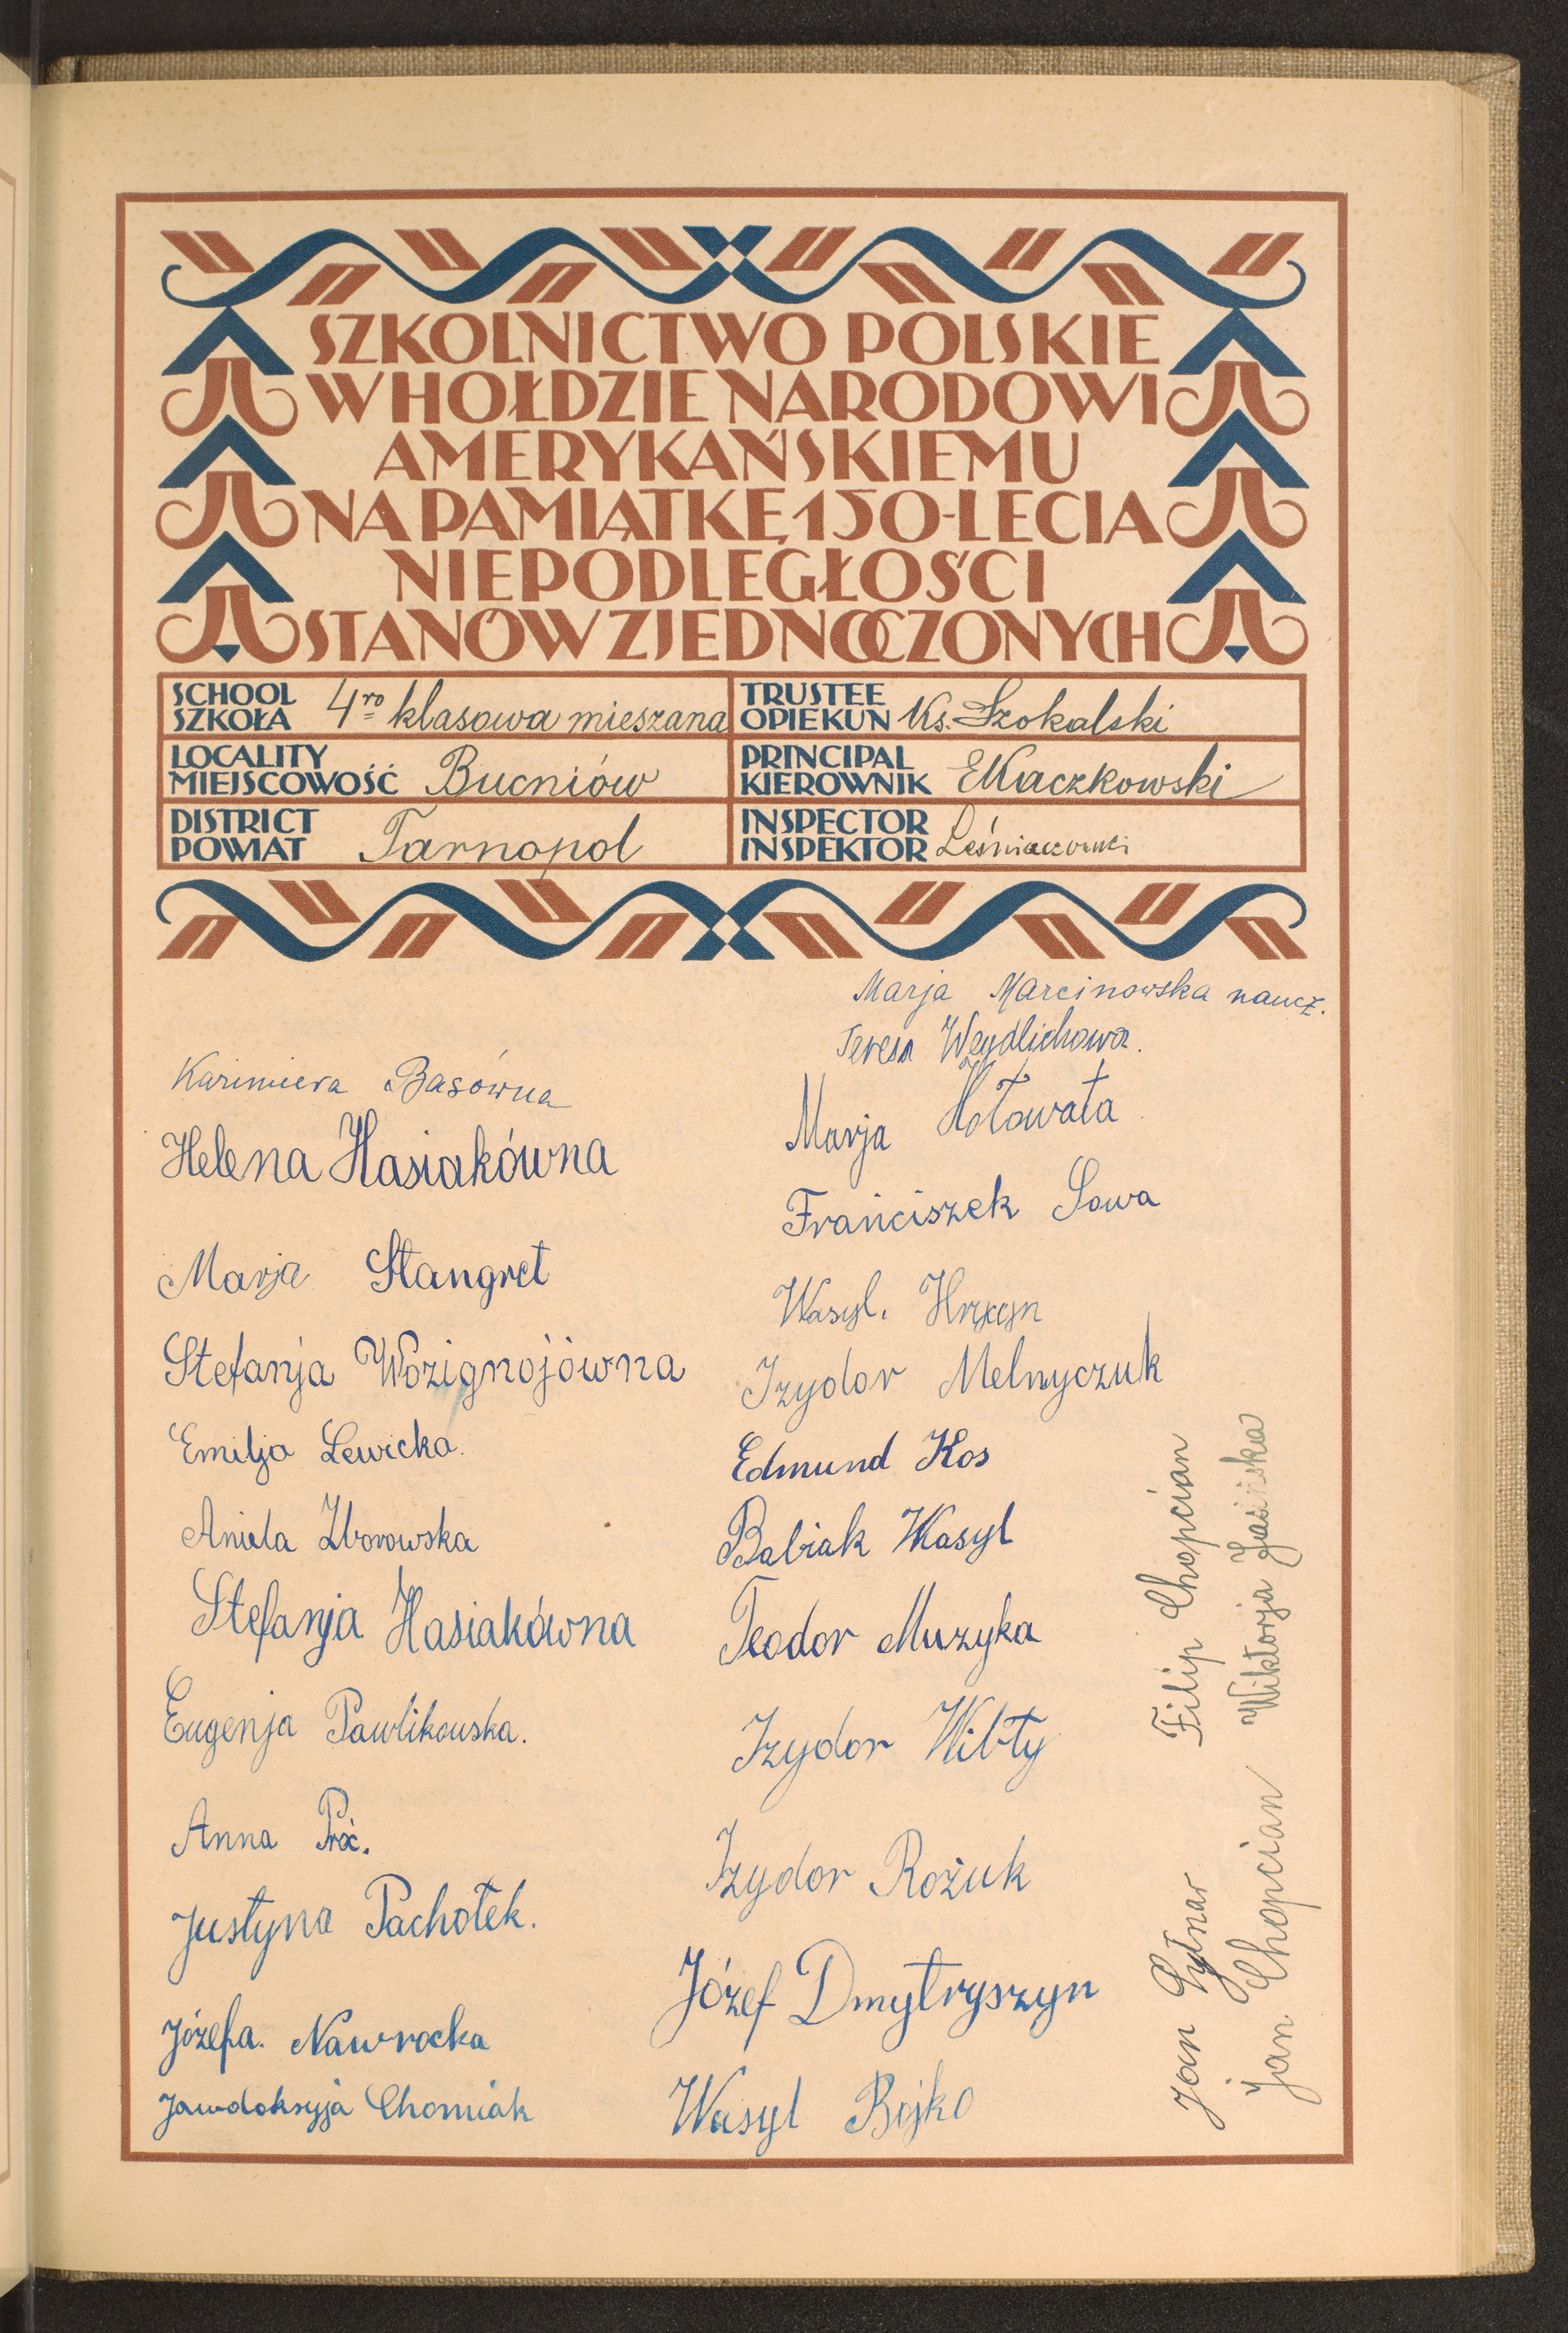 SZKOLNICTWO POLSKIE
W HOŁDZIE NARODOWI
AMERYKAŃSKIEMU
NA PAMIĄTKĘ 150-LECIA
NIEPODLEGŁOŚCI
STANÓW ZJEDNOCZONYCH
SCHOOL
SZKOŁA 4ro klasowa mieszana
TRUSTEE
OPIEKUN Ks. Szokalski
LOCALITY
MIEJSCOWOŚĆ Bucniów
PRINCIPAL
KIEROWNIK EKaczkowski
DISTRICT
POWIAT Tarnopol
INSPECTOR
INSPEKTOR
Marja Marcinowska naucz.
Teresa Weydlichowa.
Kazimiera Basówna
Helena Hasiakówna
Marja Stangret
Stefanja Wozignojówna
Emilja Lewicka.
Aniela Zborowska
Stefanja Hasiakówna
Eugenja Pawlikowska.
Anna Próc.
Justyna Pachołek.
Józefa. Nawrocka
Jawdoksyja Chomiak
Marja Hołowata
Frańciszek Sowa
Wasyl. Hrycyn
Izydor Melnyczuk
Edmund Kos
Babiak Wasyl
Teodor Muzyka
Izydor Wibły
Izydor Rożuk
Józef Dmytryszyn
Wasyl Bojko
Filip Chopcian
Wiktorja Jasińska
Jan
Jan Chopcian